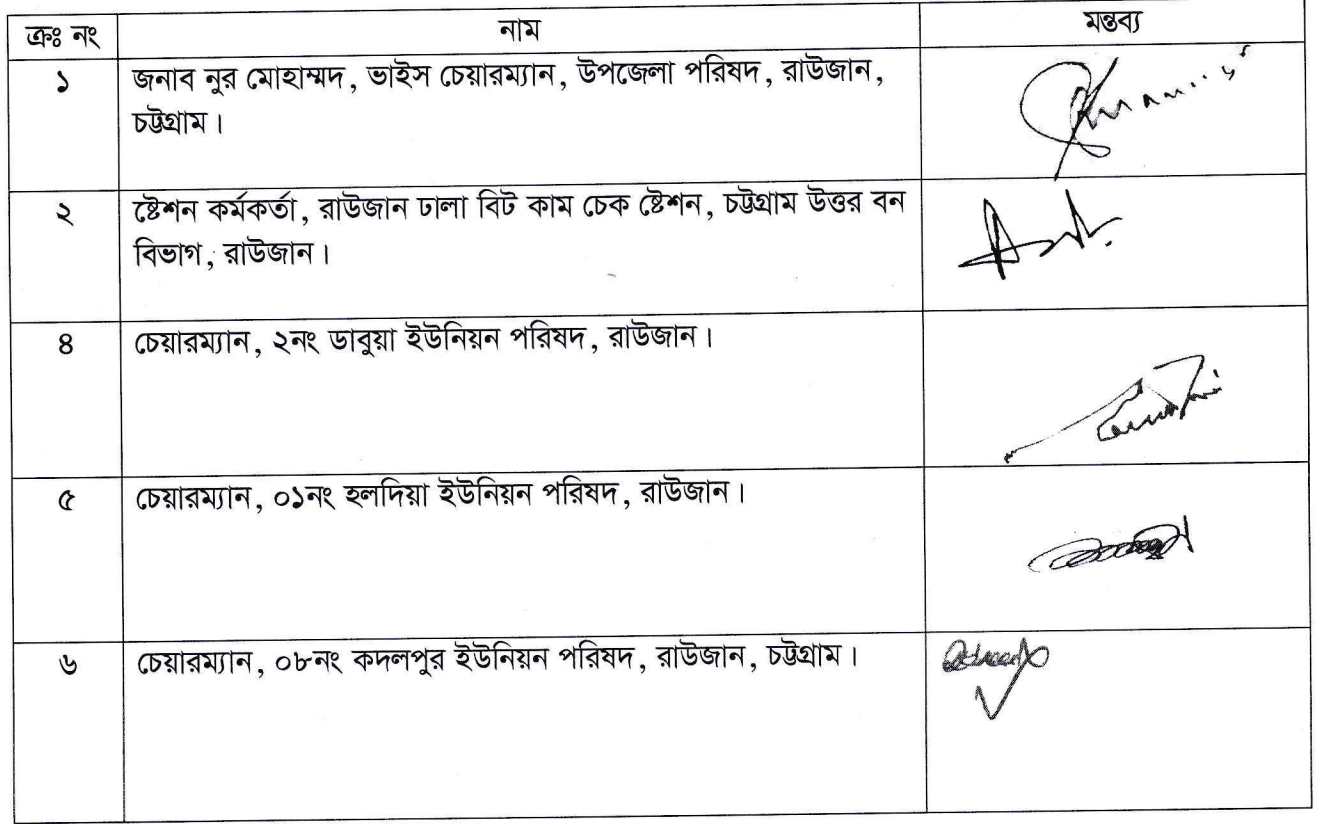 ক্রঃ নং নাম মন্তব্য
১ জনাব নুর মোহাম্মদ, ভাইস চেয়ারম্যান, উপজেলা পরিষদ, রাউজান,
চট্টগ্রাম।
২ ষ্টেশন কর্মকর্তা, রাউজান ঢালা বিট কাম চেক ষ্টেশন, চট্টগ্রাম উত্তর বন
বিভাগ, রাউজান।
৪ চেয়ারম্যান, ২নং ডাবুয়া ইউনিয়ন পরিষদ, রাউজান।
৫ চেয়ারম্যান, ০১নং হলদিয়া ইউনিয়ন পরিষদ, রাউজান।
৬ চেয়ারম্যান, ০৮নং কদলপুর ইউনিয়ন পরিষদ, রাউজান, চট্টগ্রাম।